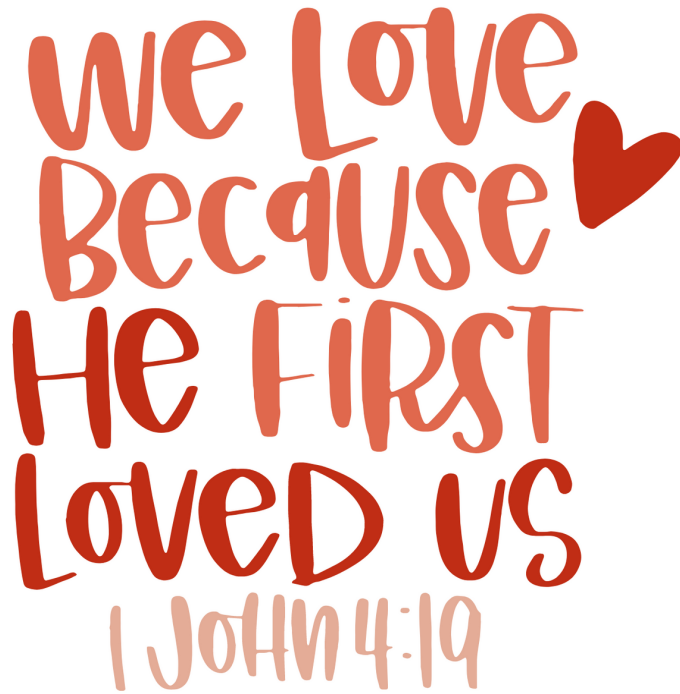 We Love
Because
He FiRST
Loved us
1 John 4:19